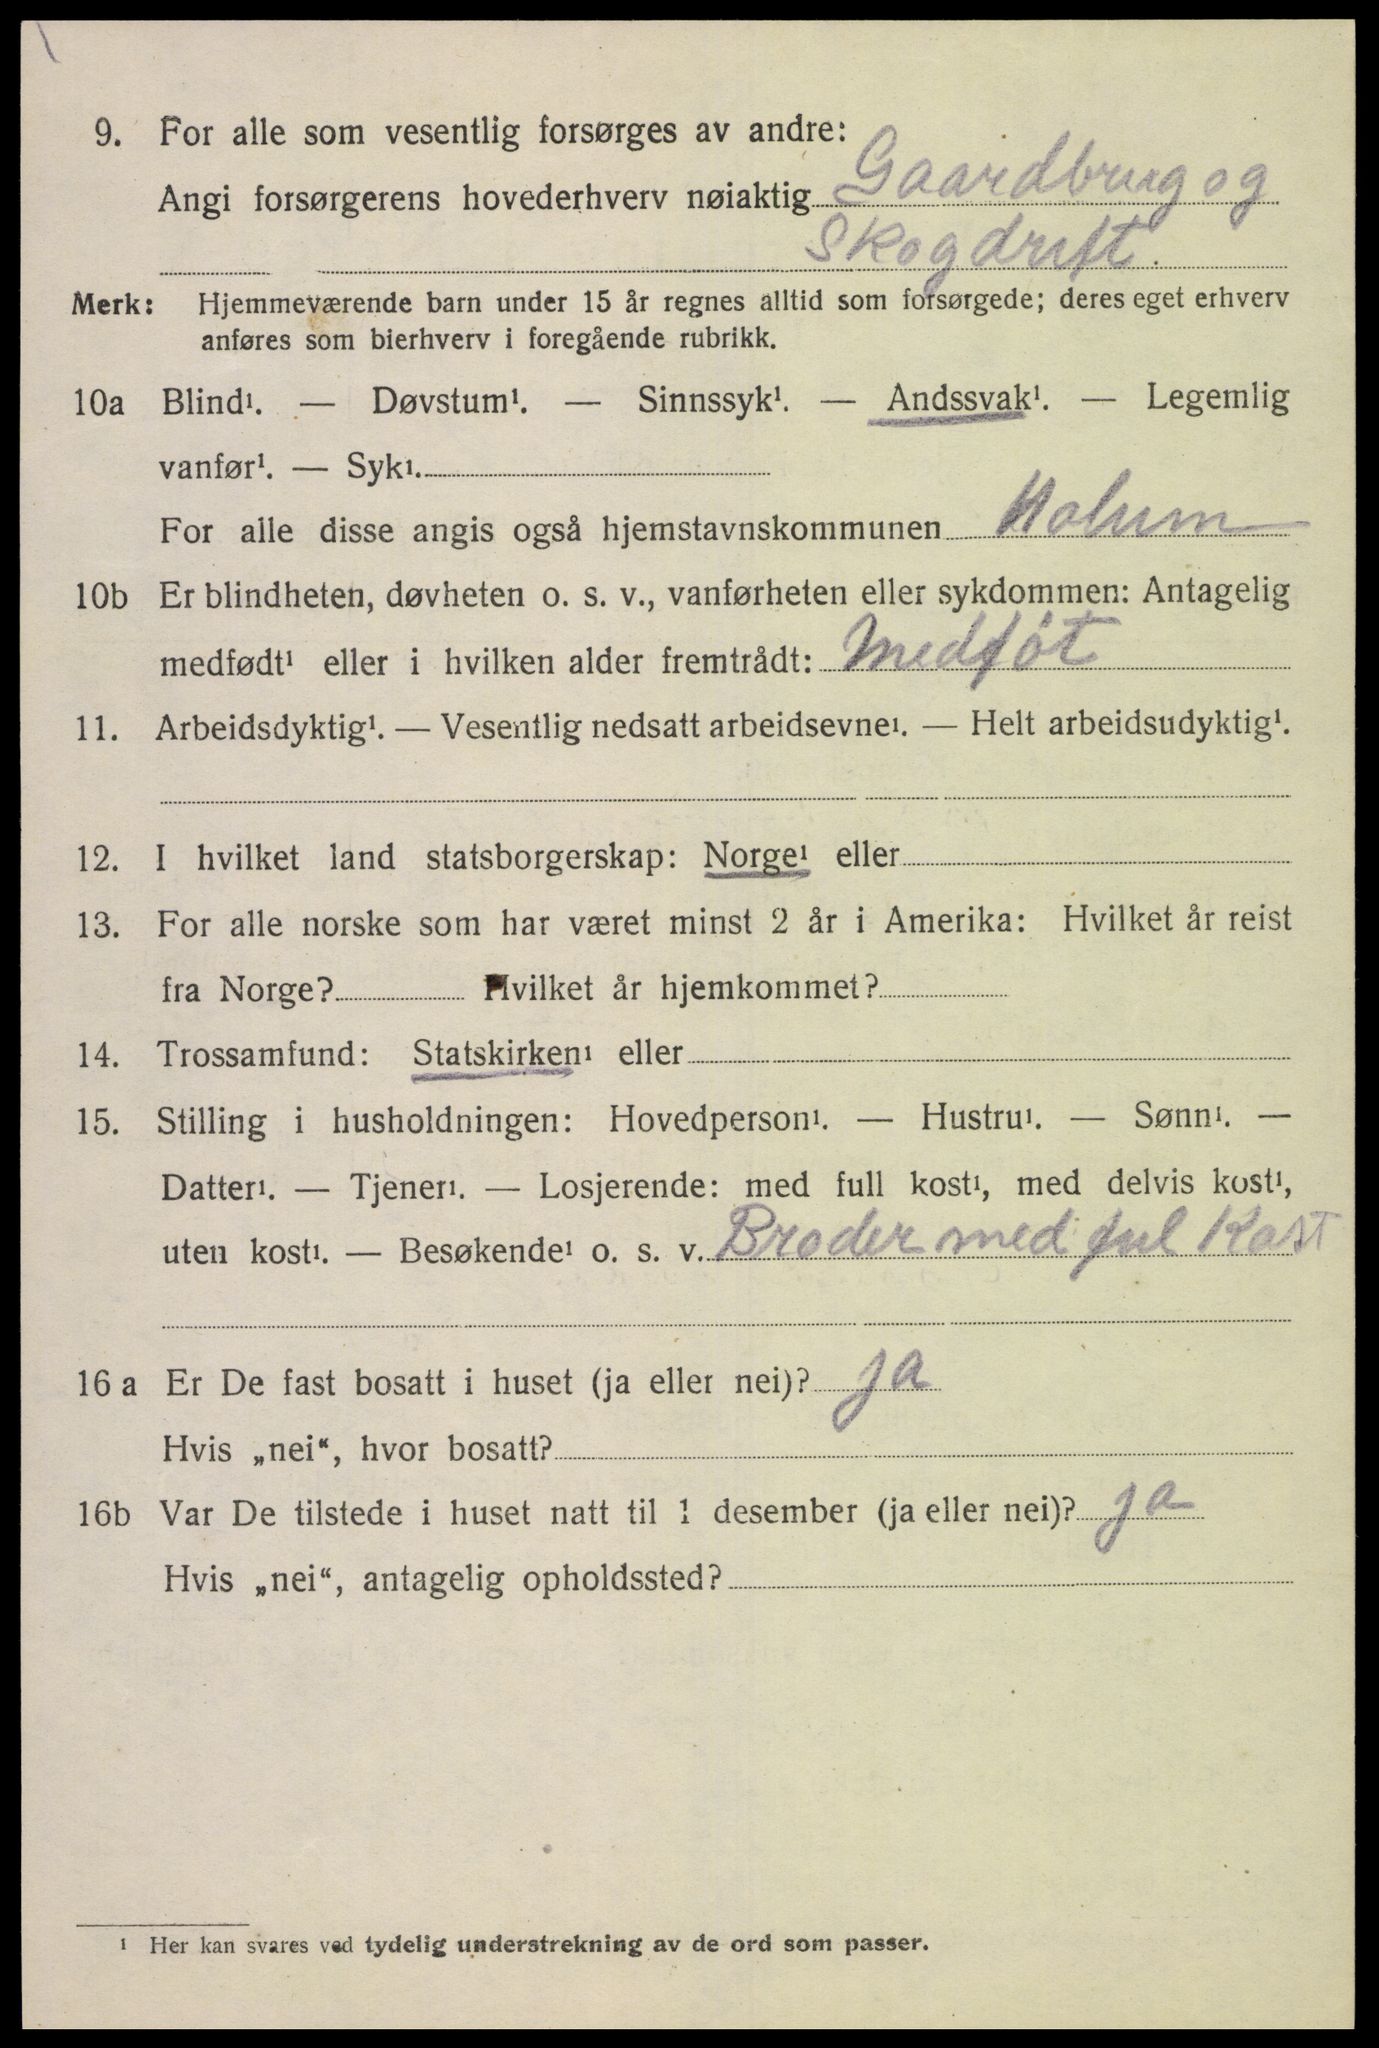 9. For alle som vesentlig forsørges av andre:
Angi forsørgerens hovederhverv nøiaktig Gaardbrug og
Skogdrift.
Merk: Hjemmeværende barn under 15 år regnes alltid som forsørgede; deres eget erhverv
anføres som bierhverv i foregående rubrikk.
10a Blind¹. — Døvstum¹. — Sinnssyk¹. — Andssvak¹. — Legemlig
vanfør¹. — Syk¹.
For alle disse angis også hjemstavnskommunen Holum
10b Er blindheten, døvheten o. s. v., vanførheten eller sykdommen: Antagelig
medfødt¹ eller i hvilken alder fremtrådt: Medføt
11. Arbeidsdyktig¹. — Vesentlig nedsatt arbeidsevne¹. — Helt arbeidsudyktig¹.
12. I hvilket land statsborgerskap: Norge¹ eller
13. For alle norske som har været minst 2 år i Amerika: Hvilket år reist
fra Norge? Hvilket år hjemkommet?
14. Trossamfund: Statskirken¹ eller
15. Stilling i husholdningen: Hovedperson¹. — Hustru¹. — Sønn¹. —
Datter¹. — Tjener¹. — Losjerende: med full kost¹, med delvis kost¹,
uten kost¹. — Besøkende¹ o. s. v. Broder med ful Kost
16 a Er De fast bosatt i huset (ja eller nei)? ja
Hvis „nei“, hvor bosatt?
16b Var De tilstede i huset natt til 1 desember (ja eller nei)? ja
Hvis „nei“, antagelig opholdssted?
¹ Her kan svares ved tydelig understrekning av de ord som passer.